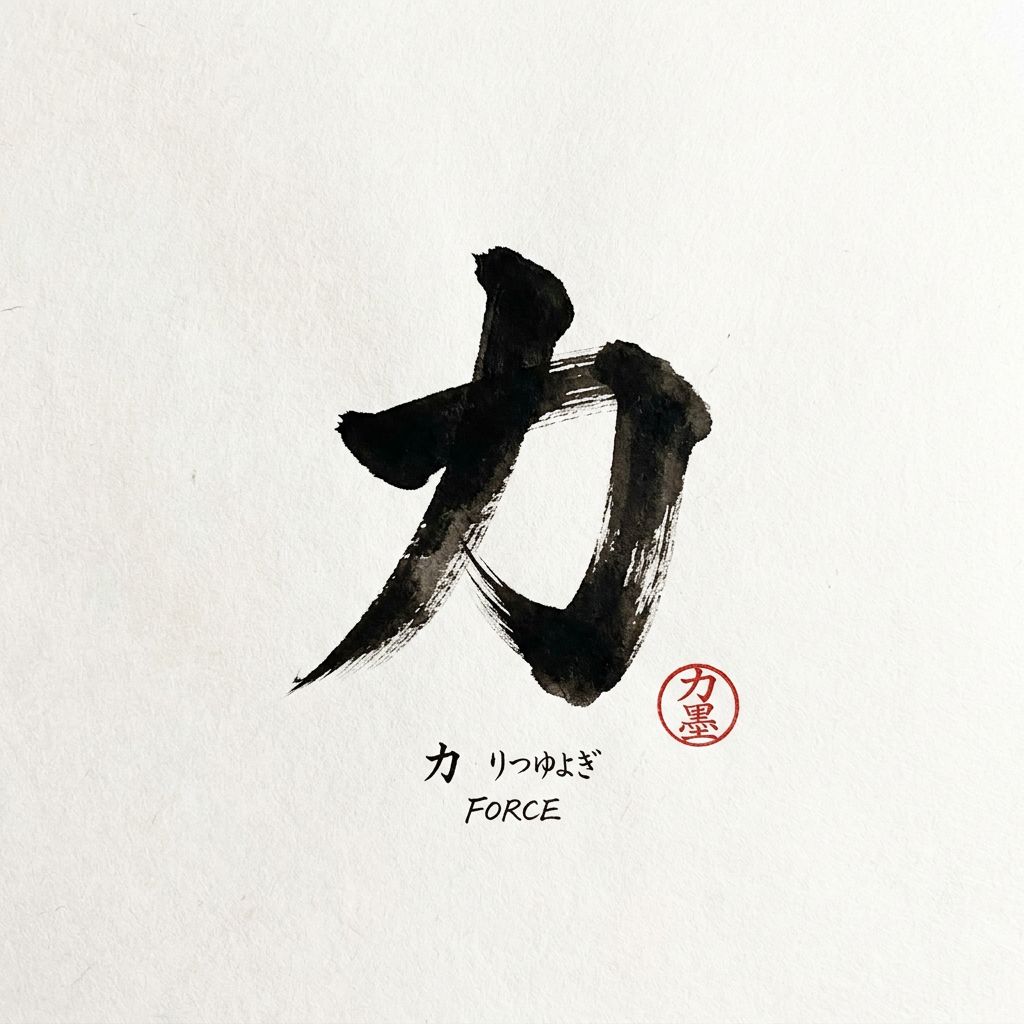 力
力墨
力 りつゆよぎ
FORCE